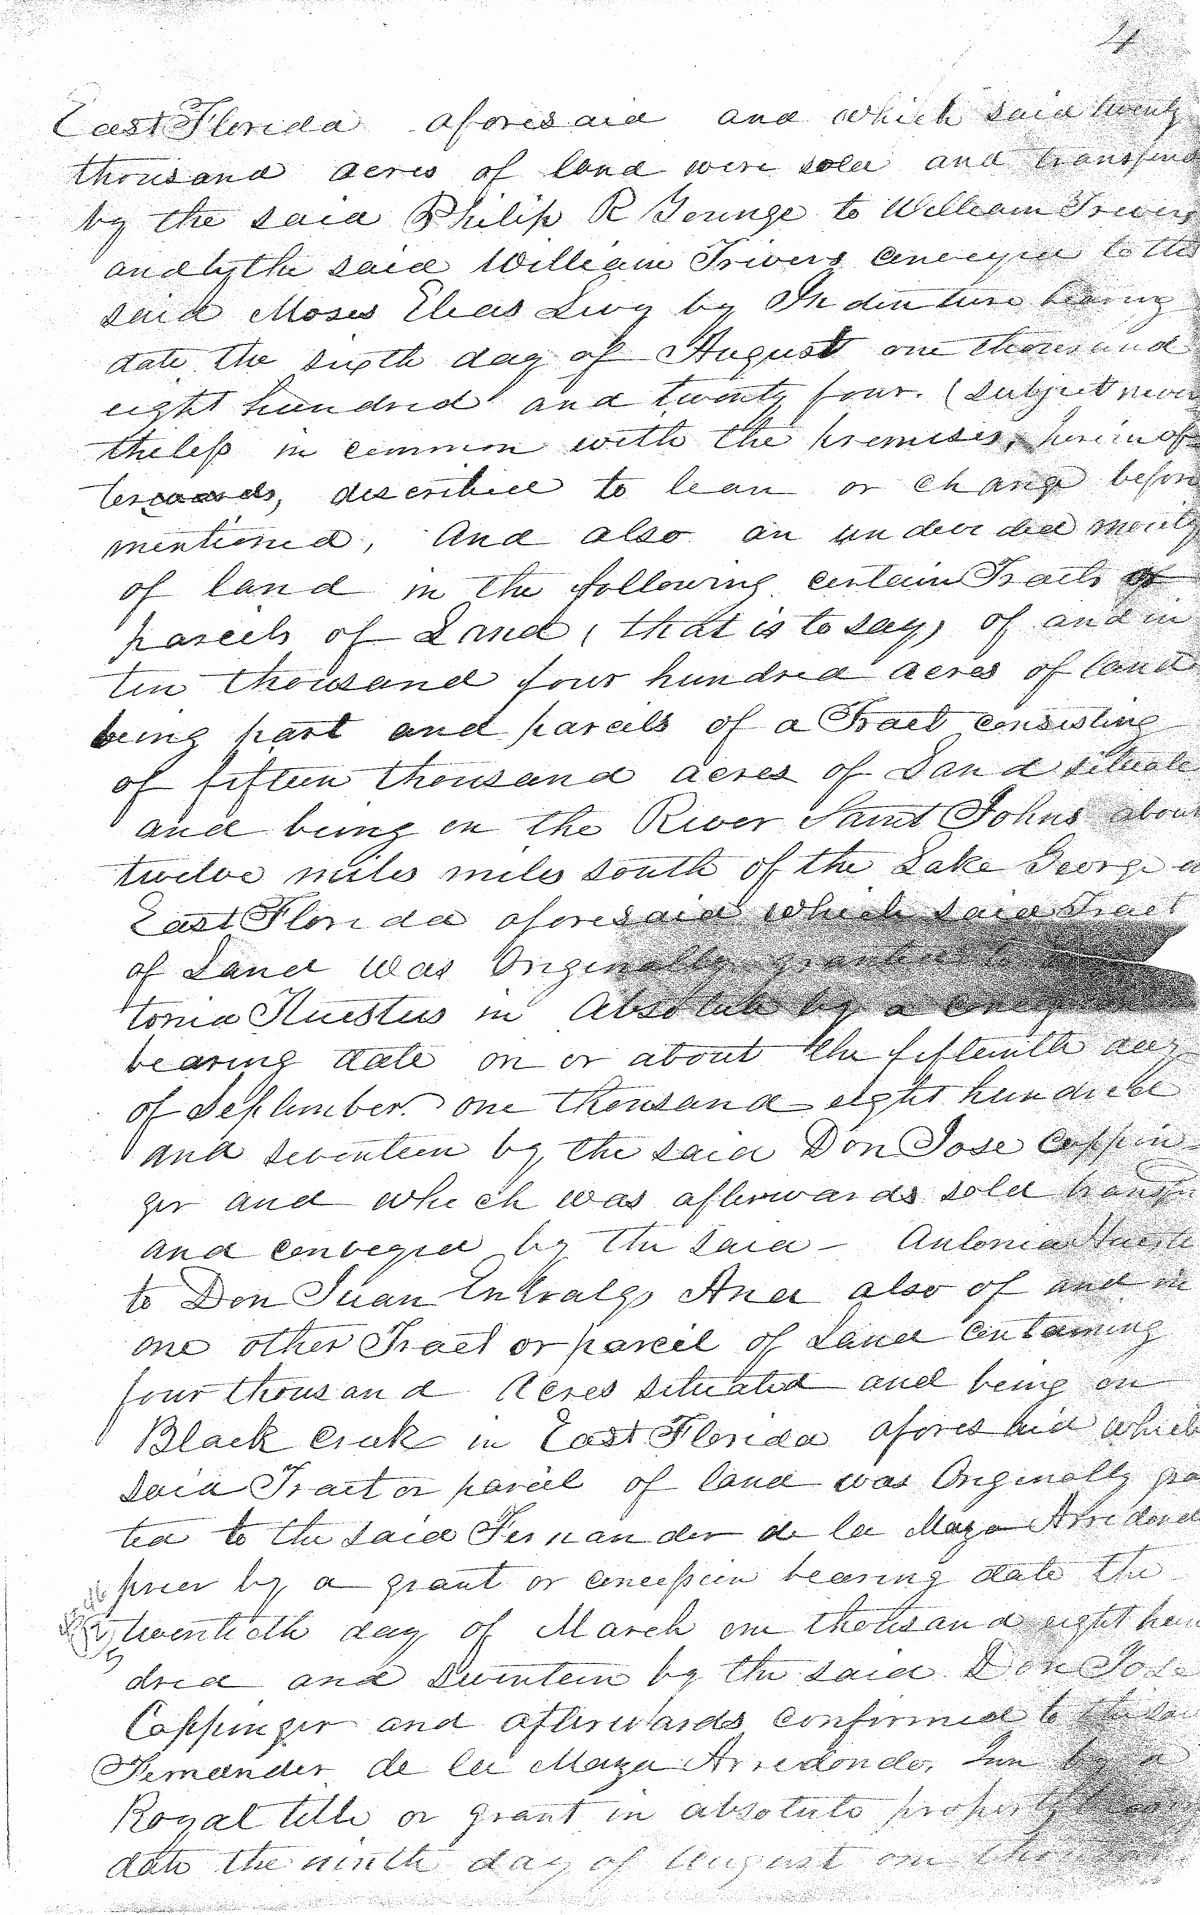 4
East Florida aforesaid and which said twenty
thousand acres of land were sold and transferred
by the said Philip R Younge to William Trivers
and by the said William Trivers conveyed to the
said Moses Elias Levy by Indenture bearing
date the sixth day of August one thousand
eight hundred and twenty four. (subject never
theless in common with the premises, hereinaf-
terwards, described to lean or change before
mentioned, And also an undevided moiety
of land in the following certain Tracts or
parcels of Land, that is to say, of and in
ten thousand four hundred acres of land
being part and parcels of a Tract consisting
of fifteen thousand acres of Land situate
and being on the River Saint Johns about
twelve miles miles south of the Lake George
East Florida aforesaid which said Tract
of Land was Originally granted to
tonia Huestus in Absolute by a
bearing date on or about the fifteenth day
of September. one thousand eight hundred
and seventeen by the said Don Jose Coppin-
ger and which was afterwards sold
and conveyed by the said - Antonia
to Don Juan Entralgo And also of and in
one other Tract or parcel of Land containing
four thousand Acres situated and being on
Black Creek in East Florida aforesaid which
said Tract or parcel of land was Originally gra
ted to the said Fernander de la Maza Arredond
prier by a grant or concession bearing date the
twentieth day of March one thousand eight hun
dred and seventeen by the said Don Jose
Coppinger and afterwards confirmed to the
Fernander de la Maza Arredondo, by a
Royal title or grant in absolute property
date the ninth day of August one